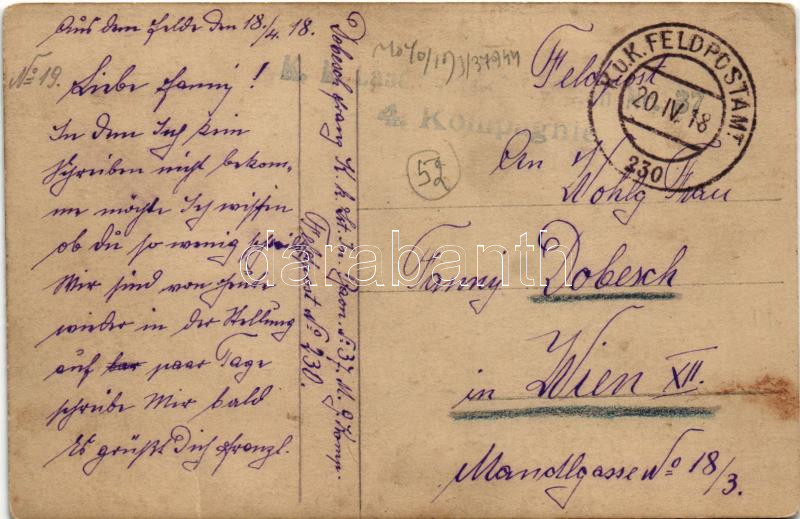 Aus dem Felde den 18./4. 18.
No 19.
Liebe Fanny!
In dem Ich kein
Schreiben nicht bekom-
me möchte Ich wissen
ob du so wenig
Wir sind von heute
wieder in der Stellung
auf paar Tage
schreibe Mir bald
Es grüßt Dich Franzl.
Dobesch Franz K. k. Lst. In. Baon. No. 37
Feldpost No 230.
K. k.
4. Kompagnie
37
52
K.u.K. FELDPOSTAMT
20.IV.18
230
Feldpost
An
Wohlg Frau
Fanny Dobesch
in Wien XII.
Mandlgasse No 18/3.
darabanth